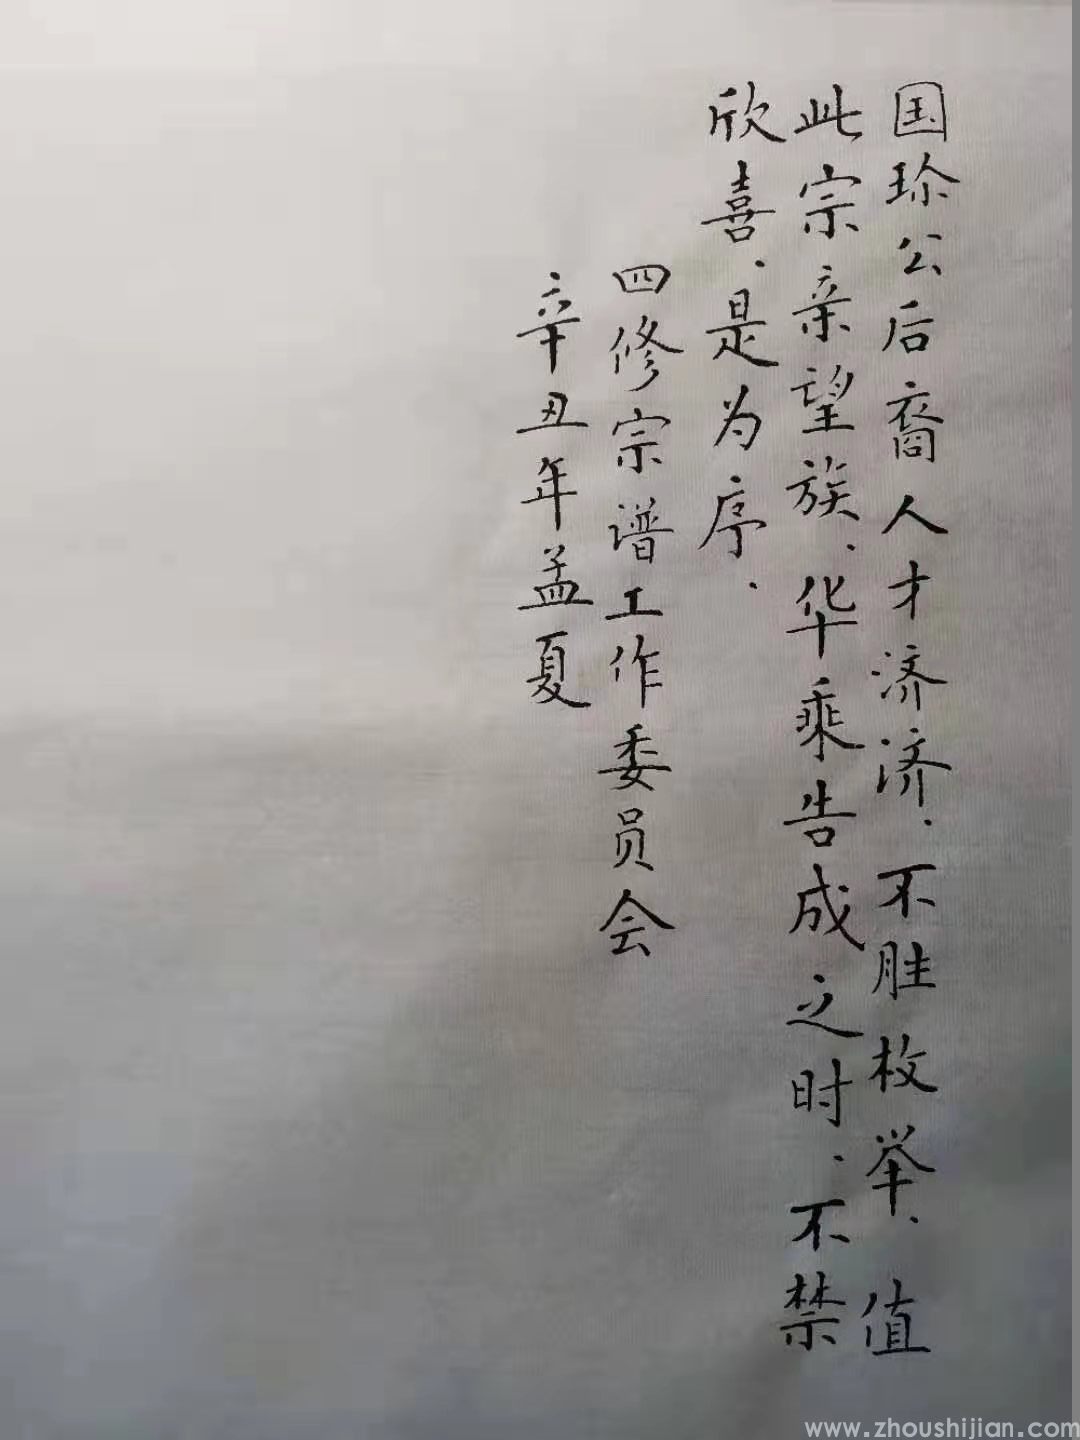 国珍公后裔人才济济.不胜枚举.值
此宗亲望族.华乘告成之时.不禁
欣喜.是为序.
四修宗谱工作委员会
辛丑年孟夏
www.zhoushijian.com